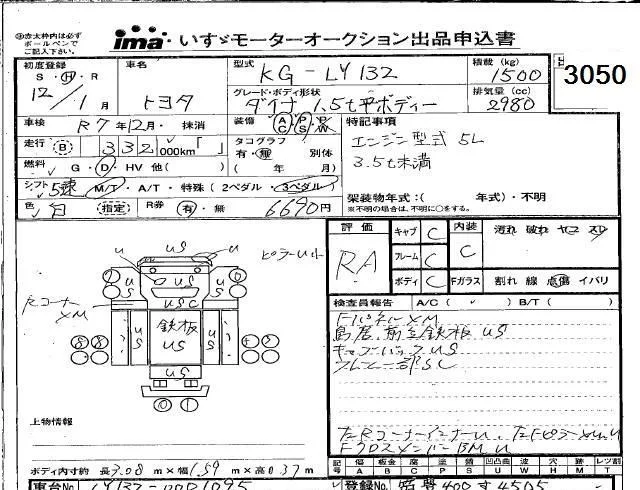 ※赤太枠内は必ず
ボールペンで
ご記入下さい。
ima いすゞモーターオークション出品申込書
3050
初度登録 S・H・R 12年/1月
車名 トヨタ
型式 KG-LY132
積載(kg) 1500
グレード・ボディ形状 ダイナ 1.5t平ボディー
排気量(cc) 2980
車検 R7年12月・抹消
装備 AC PS PW
特記事項
エンジン型式 5L
3.5t未満
走行 332,000km「 」
タコグラフ 有・無 別体 ( 年 月)
燃料 G・D・HV 他( )
シフト 5速 M/T・A/T・特殊(2ペダル・3ペダル)
架装物年式:( 年式)・不明
※不明の場合は、不明に○をする。
色 白(指定) R券 有・無 6690円
評価 RA
キャブ C
フレーム C
ボディ C
内装 C
Fガラス
汚れ 破れ ヤニ スレ
割れ 線 点傷 イバリ
検査員報告 A/C( ✓ ) B/T( )
FパネルXM
鳥居、前立鉄板US
キャブバックUS
フレーム一部SC
左RコーナーインナーU、左FピラーXM,U
FクロスメンバーBM U
u US u ピラーU小
US US
USC
右コーナー XM
US US 鉄板 US US
8 8
0 1
上物情報
ボディ内寸約 長3.08m×幅1.59m×高0.37m
記号 傷A 板金B 腐C 塗P サビS 凹凸U 波W 穴H 跡M レンツ割T
車台No LY132-0001095
登録No. 400す4505